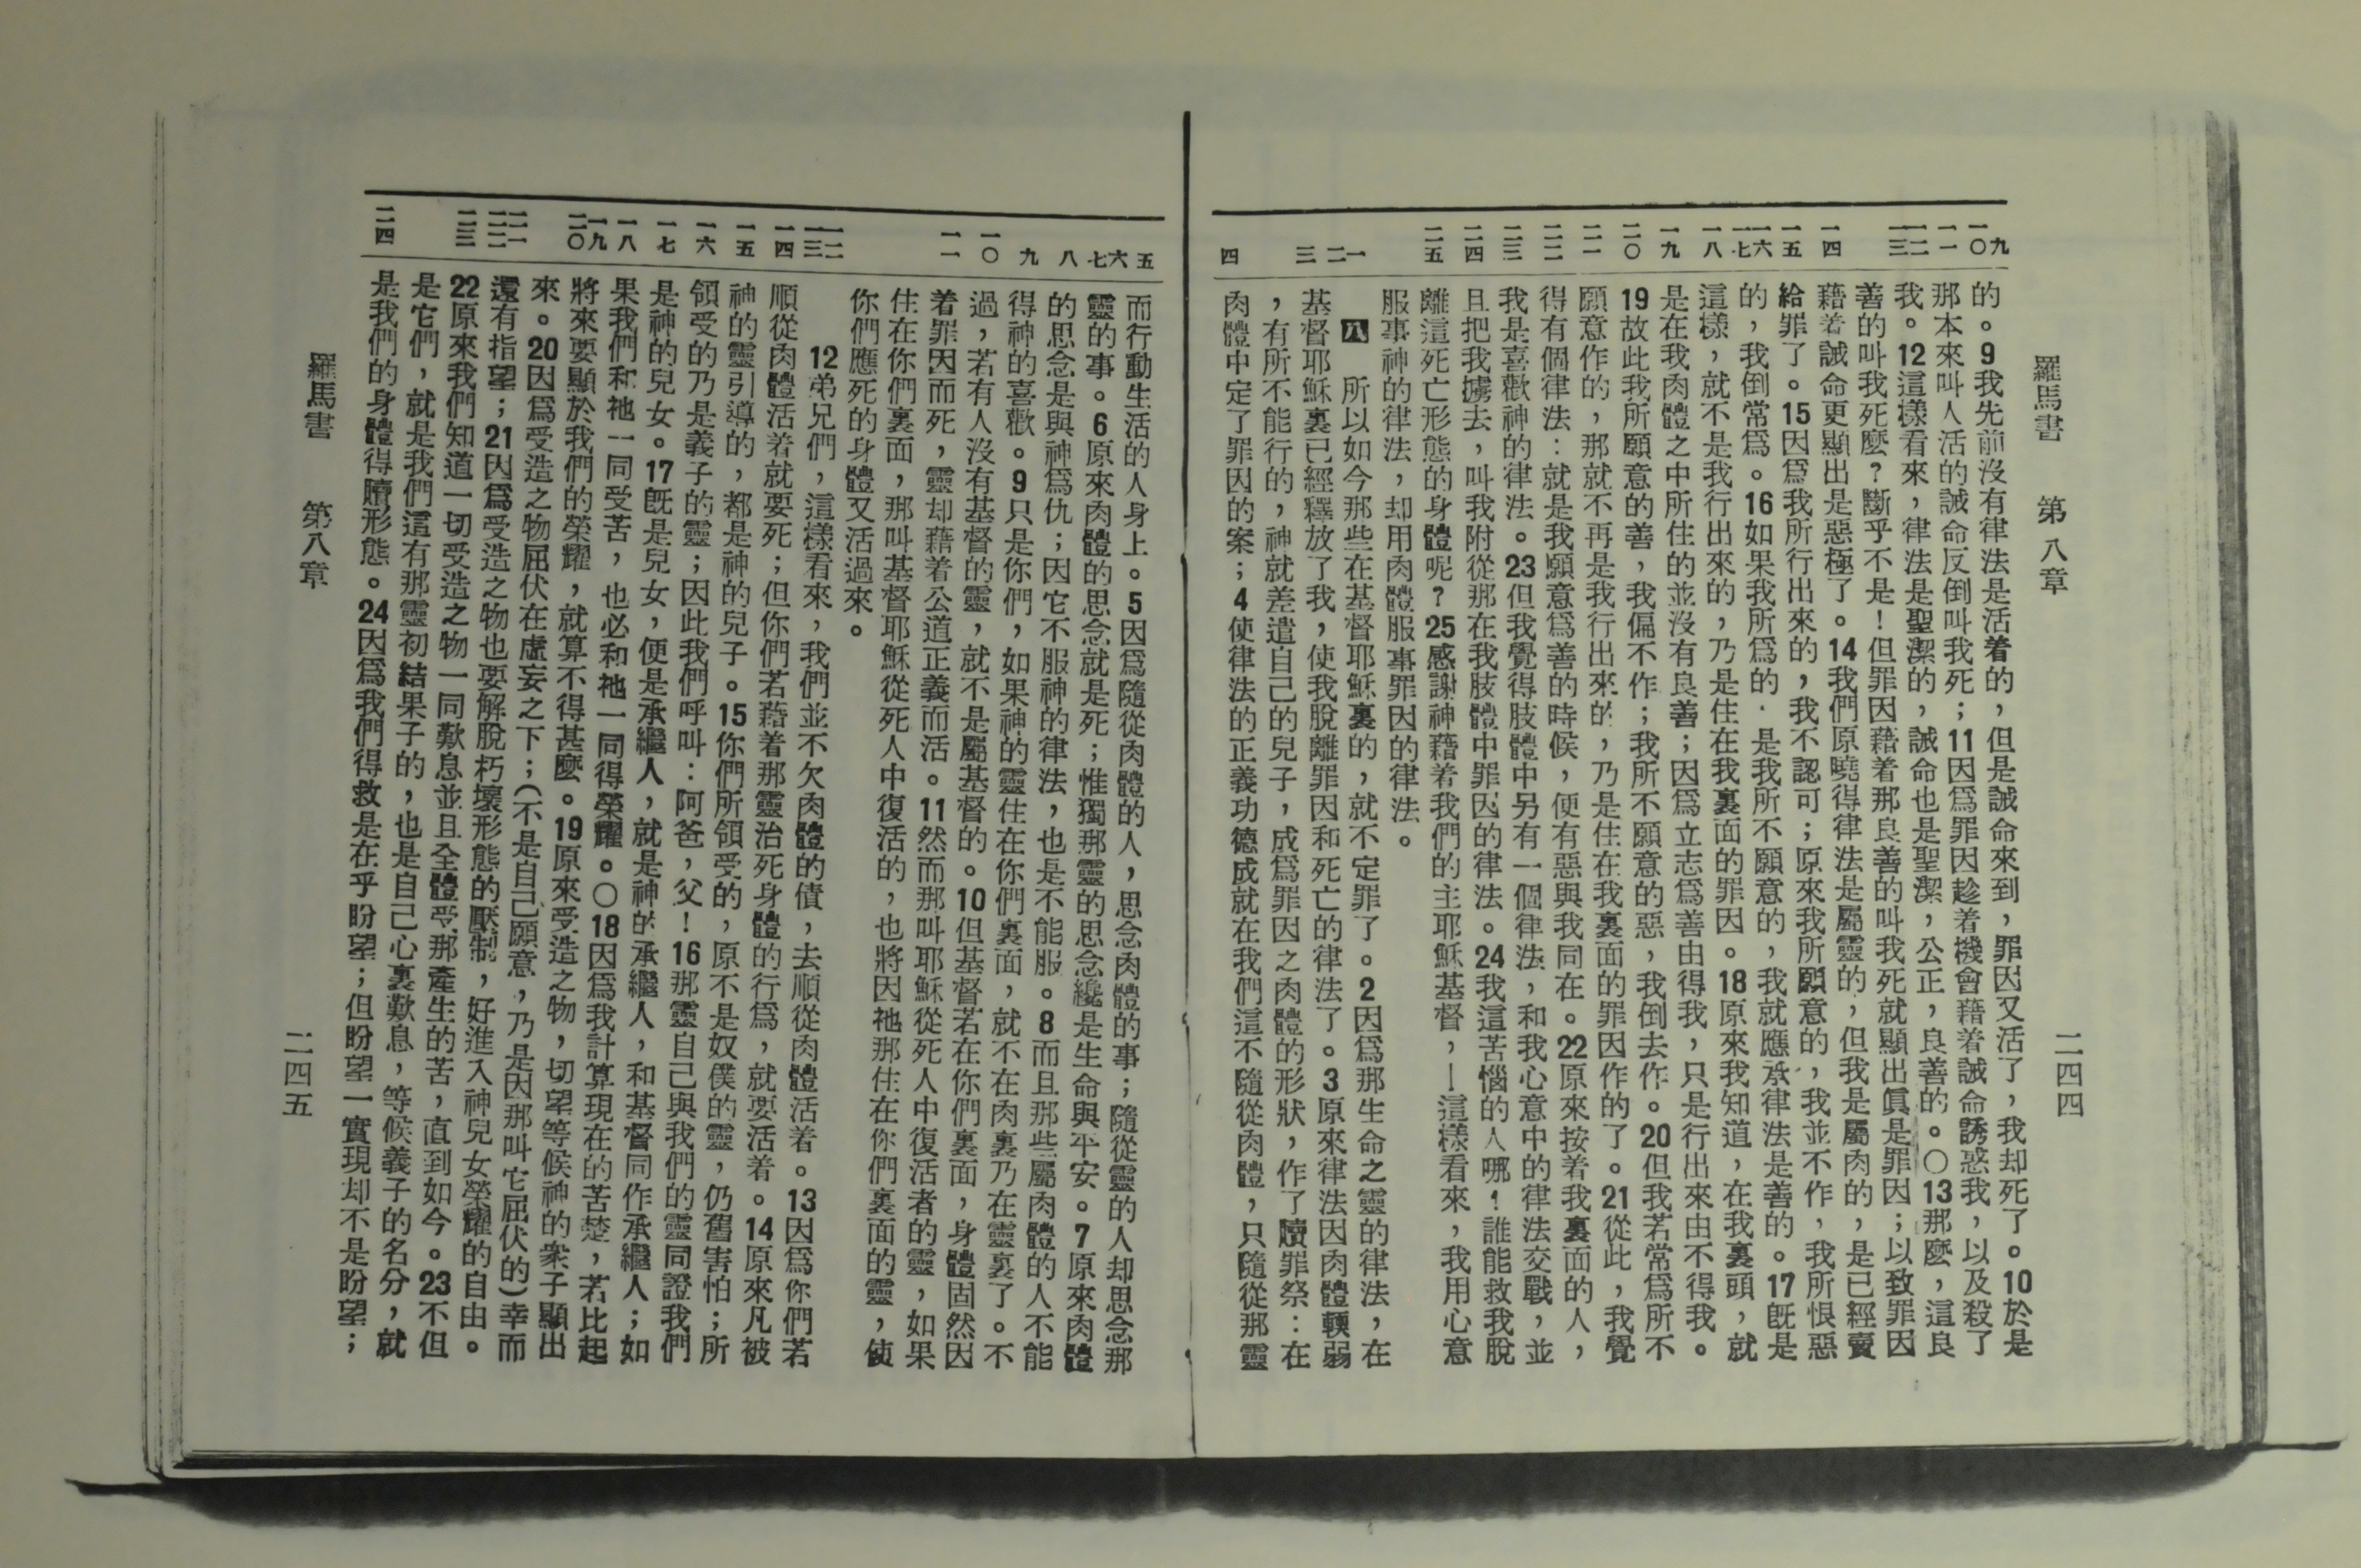 羅馬書　第八章　二四四
九 一〇 一一 一二 一三 一四 一五 一六 一七 一八 一九 二〇 二一 二二 二三 二四 二五 一 二 三 四
的。9我先前沒有律法是活着的，但是誡命來到，罪因又活了，我却死了。10於是
那本來叫人活的誡命反倒叫我死；11因爲罪因趁着機會藉着誡命誘惑我，以及殺了
我。12這樣看來，律法是聖潔的，誡命也是聖潔，公正，良善的。〇13那麼，這良
善的叫我死麼？斷乎不是！但罪因藉着那良善的叫我死就顯出眞是罪因；以致罪因
藉着誡命更顯出是惡極了。14我們原曉得律法是屬靈的，但我是屬肉的，是已經賣
給罪了。15因爲我所行出來的，我不認可；原來我所願意的，我並不作，我所恨惡
的，我倒常爲。16如果我所爲的，是我所不願意的，我就應承律法是善的。17旣是
這樣，就不是我行出來的，乃是住在我裏面的罪因。18原來我知道，在我裏頭，就
是在我肉體之中所住的並沒有良善；因爲立志爲善由得我，只是行出來由不得我。
19故此我所願意的善，我偏不作；我所不願意的惡，我倒去作。20但我若常爲所不
願意作的，那就不再是我行出來的，乃是住在我裏面的罪因作的了。21從此，我覺
得有個律法：就是我願意爲善的時候，便有惡與我同在。22原來按着我裏面的人，
我是喜歡神的律法。23但我覺得肢體中另有一個律法，和我心意中的律法交戰，並
且把我擄去，叫我附從那在我肢體中罪因的律法。24我這苦惱的人哪！誰能救我脫
離這死亡形態的身體呢？25感謝神藉着我們的主耶穌基督，—這樣看來，我用心意
服事神的律法，却用肉體服事罪因的律法。
八　所以如今那些在基督耶穌裏的，就不定罪了。2因爲那生命之靈的律法，在
基督耶穌裏已經釋放了我，使我脫離罪因和死亡的律法了。3原來律法因肉體輭弱
，有所不能行的，神就差遣自己的兒子，成爲罪因之肉體的形狀，作了贖罪祭：在
肉體中定了罪因的案；4使律法的正義功德成就在我們這不隨從肉體，只隨從那靈
五 六 七 八 九 一〇 一一 一二 一三 一四 一五 一六 一七 一八 一九 二〇 二一 二二 二三 二四
而行動生活的人身上。5因爲隨從肉體的人，思念肉體的事；隨從靈的人却思念那
靈的事。6原來肉體的思念就是死；惟獨那靈的思念纔是生命與平安。7原來肉體
的思念是與神爲仇；因它不服神的律法，也是不能服。8而且那些屬肉體的人不能
得神的喜歡。9只是你們，如果神的靈住在你們裏面，就不在肉裏乃在靈裏了。不
過，若有人沒有基督的靈，就不是屬基督的。10但基督若在你們裏面，身體固然因
着罪因而死，靈却藉着公道正義而活。11然而那叫耶穌從死人中復活者的靈，如果
住在你們裏面，那叫基督耶穌從死人中復活的，也將因祂那住在你們裏面的靈，使
你們應死的身體又活過來。
12弟兄們，這樣看來，我們並不欠肉體的債，去順從肉體活着。13因爲你們若
順從肉體活着就要死；但你們若藉着那靈治死身體的行爲，就要活着。14原來凡被
神的靈引導的，都是神的兒子。15你們所領受的，原不是奴僕的靈，仍舊害怕；所
領受的乃是義子的靈；因此我們呼叫：阿爸，父！16那靈自己與我們的靈同證我們
是神的兒女。17旣是兒女，便是承繼人，就是神的承繼人，和基督同作承繼人；如
果我們和祂一同受苦，也必和祂一同得榮耀。〇18因爲我計算現在的苦楚，若比起
將來要顯於我們的榮耀，就算不得甚麼。19原來受造之物，切望等候神的衆子顯出
來。20因爲受造之物屈伏在虛妄之下；（不是自己願意，乃是因那叫它屈伏的）幸而
還有指望；21因爲受造之物也要解脫朽壞形態的壓制，好進入神兒女榮耀的自由。
22原來我們知道一切受造之物一同歎息並且全體受那產生的苦，直到如今。23不但
是它們，就是我們這有那靈初結果子的，也是自己心裏歎息，等候義子的名分，就
是我們的身體得贖形態。24因爲我們得救是在乎盼望；但盼望一實現却不是盼望；
羅馬書　第八章　二四五